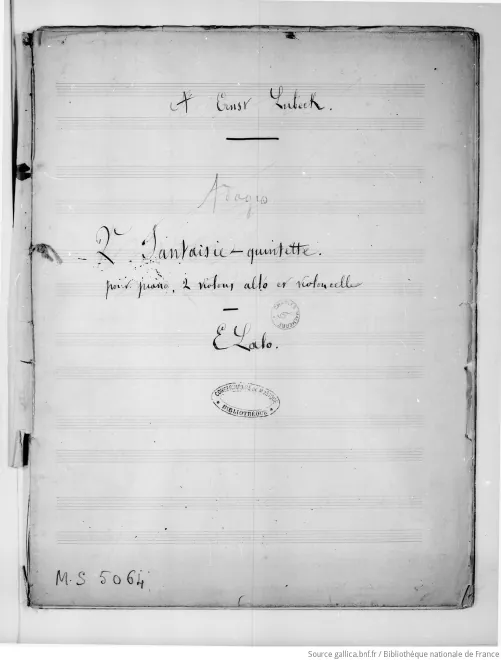 A Ernst Lubeck.
Adagio
2e Fantaisie - quintette.
pour piano, 2 violons alto et violoncelle
E Lalo.
CONSERVATOIRE DE MUSIQUE
BIBLIOTHEQUE
M.S 5064
Source gallica.bnf.fr / Bibliothèque nationale de France